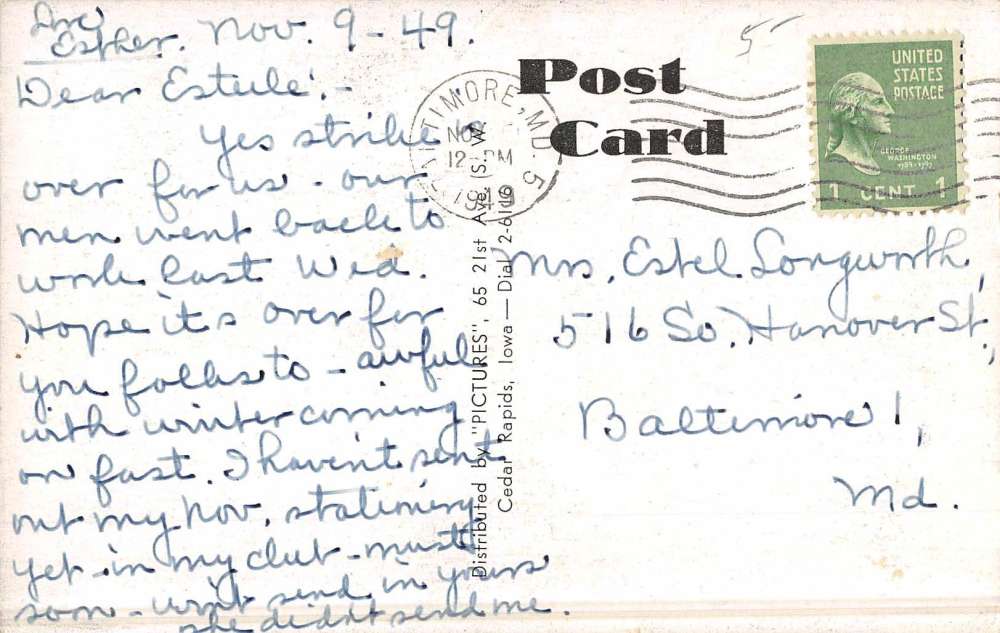 Love
Esther. Nov. 9-49.
Dear Estele:-
Yes strike is
over for us - our
men went back to
work last Wed.
Hope it's over for
you folks to - awful
with winter coming
on fast. I haven't sent
out my Nov. stationery
yet - in my club - must
soon - won't send in yours
she didn't send me.
Distributed by "PICTURES", 65 21st Ave. S. W.
Cedar Rapids, Iowa — Dial 2-6116
Post
Card
5
BALTIMORE, MD. 5
NOV
12 PM
1949
UNITED
STATES
POSTAGE
GEORGE
WASHINGTON
1789-1797
1 CENT 1
Mrs. Estel Longworth,
516 So. Hanover St.,
Baltimore 1,
Md.